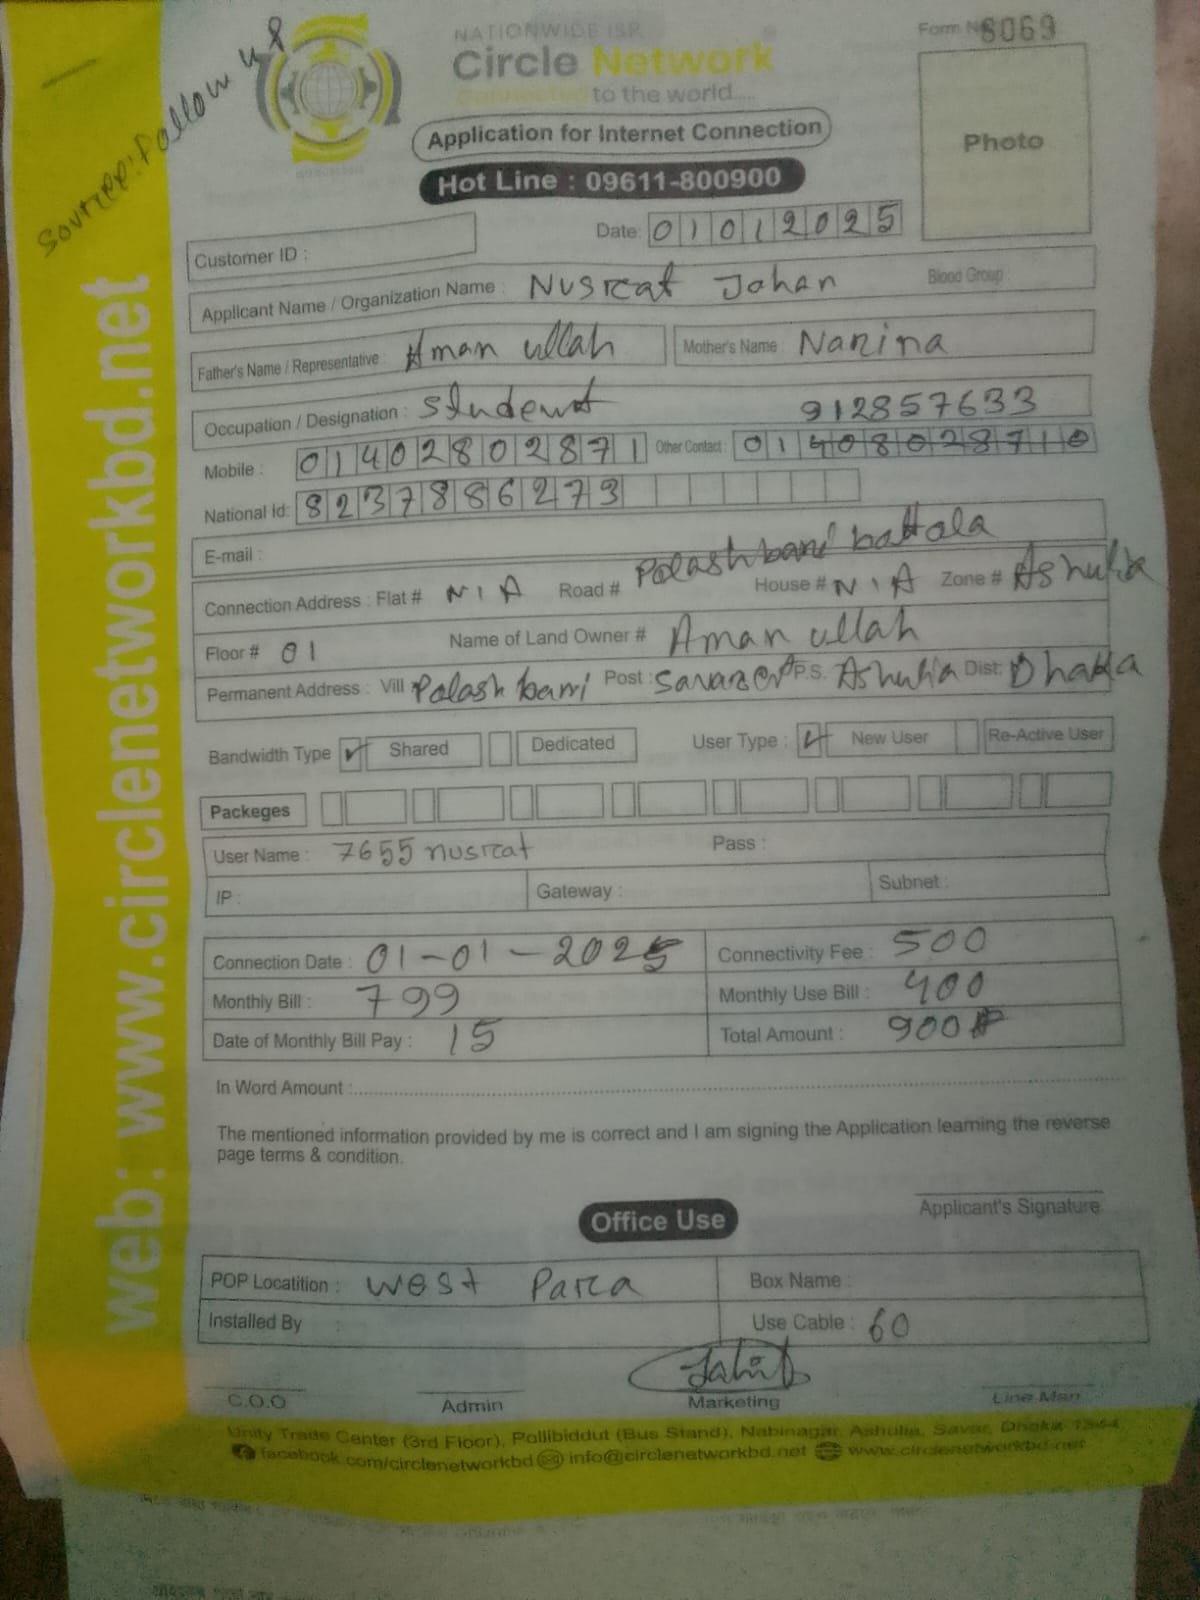 Source: follow up
NATIONWIDE ISP
Circle Network
Connected to the world....
Form N 6069
Photo
Application for Internet Connection
Hot Line : 09611-800900
Date: 01012025
Customer ID :
Applicant Name / Organization Name : Nusrat Jahan Blood Group :
Father's Name / Representative : Aman ullah Mother's Name Narina
Occupation / Designation : Student 912857633
Mobile : 01402802871 Other Contact : 01408028710
National Id: 8237886273
E-mail :
Connection Address : Flat # N/A Road # Palashbari battala House # N/A Zone # Ashulia
Floor # 01 Name of Land Owner # Aman ullah
Permanent Address : Vill Palash bari Post : P.S. Ashulia Dist: Dhaka
Bandwidth Type ✓ Shared Dedicated User Type : ✓ New User Re-Active User
Packeges
User Name : 7655nusrat Pass :
IP : Gateway : Subnet :
Connection Date : 01-01-2025 Connectivity Fee : 500
Monthly Bill : 799 Monthly Use Bill : 400
Date of Monthly Bill Pay : 15 Total Amount : 900
In Word Amount :
The mentioned information provided by me is correct and I am signing the Application learning the reverse
page terms & condition.
Applicant's Signature
Office Use
POP Locatition : West Para Box Name :
Installed By : Use Cable : 60
C.O.O Admin Marketing Line Man
Unity Trade Center (3rd Floor), Pallibiddut (Bus Stand), Nabinagar, Ashulia, Savar, Dhaka 1344
facebook.com/circlenetworkbd info@circlenetworkbd.net www.circlenetworkbd.net
web: www.circlenetworkbd.net